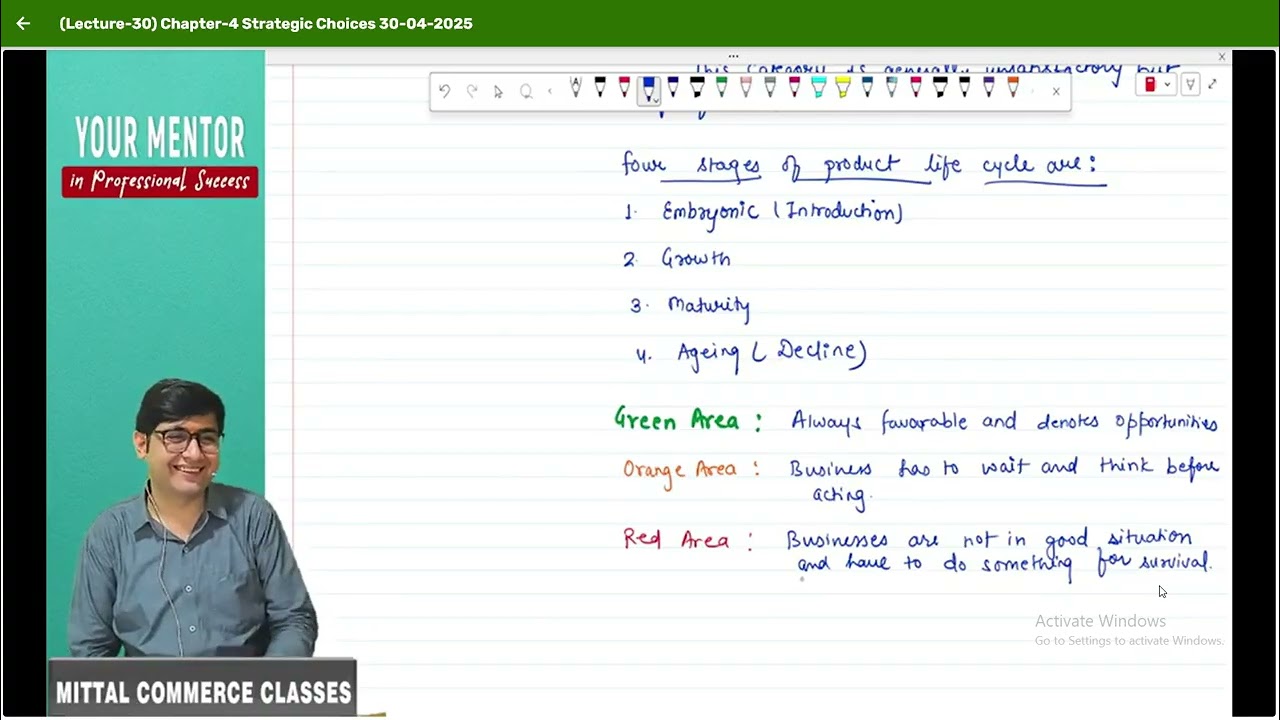 (Lecture-30) Chapter-4 Strategic Choices 30-04-2025
This category is generally unsatisfactory but
YOUR MENTOR
in Professional Success
four stages of product life cycle are:
1. Embryonic (Introduction)
2. Growth
3. Maturity
4. Ageing (Decline)
Green Area : Always favorable and denotes opportunities
Orange Area : Business has to wait and think before
acting.
Red Area : Businesses are not in good situation
and have to do something for survival.
Activate Windows
Go to Settings to activate Windows.
MITTAL COMMERCE CLASSES